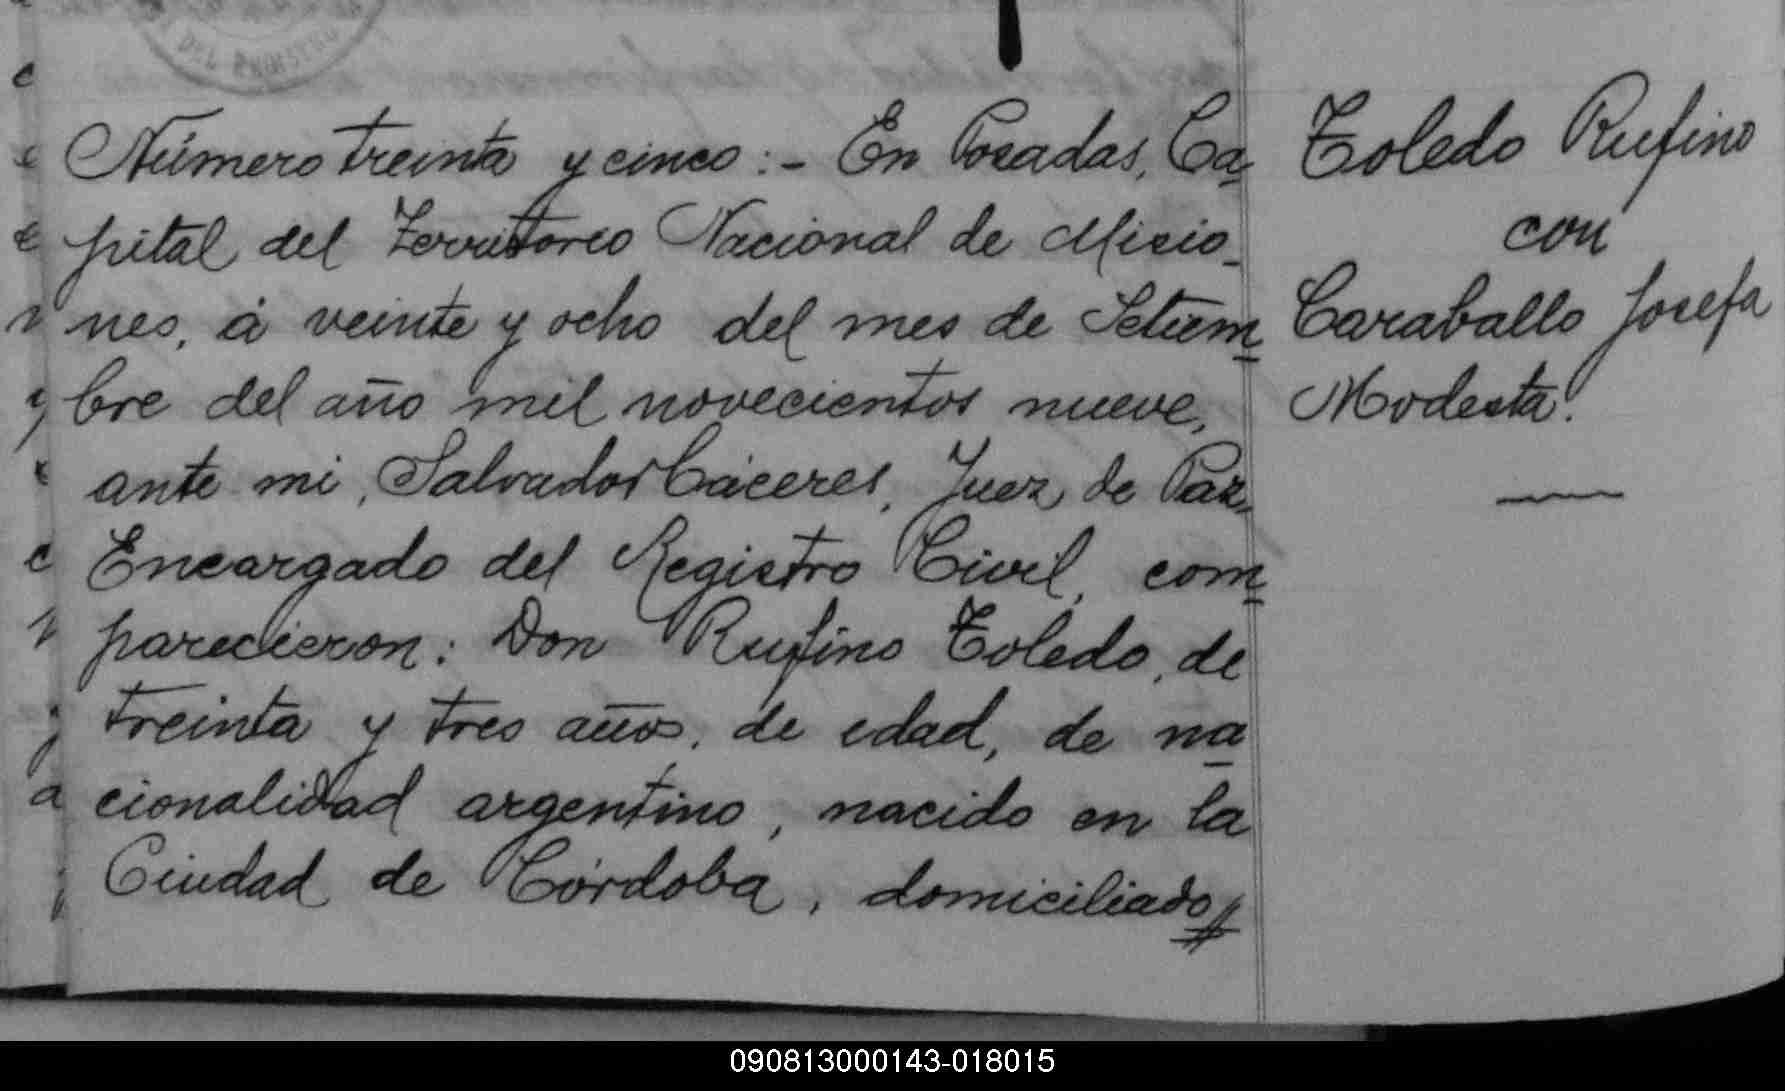 DEL
Número treinta y cinco:- En Posadas, Ca-
pital del Territorio Nacional de Misio-
nes, á veinte y ocho del mes de Setiem-
bre del año mil novecientos nueve,
ante mi, Salvador Cáceres, Juez de Paz,
Encargado del Registro Civil, com-
parecieron: Don Rufino Toledo, de
treinta y tres años, de edad, de na-
cionalidad argentino, nacido en la
Ciudad de Córdoba, domiciliado//
Toledo Rufino
con
Caraballo Josefa
Modesta.
090813000143-018015